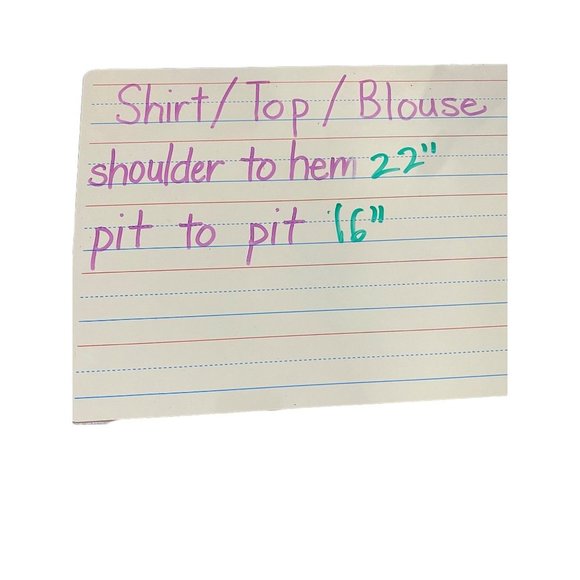 Shirt/Top/Blouse
shoulder to hem 22"
pit to pit 16"